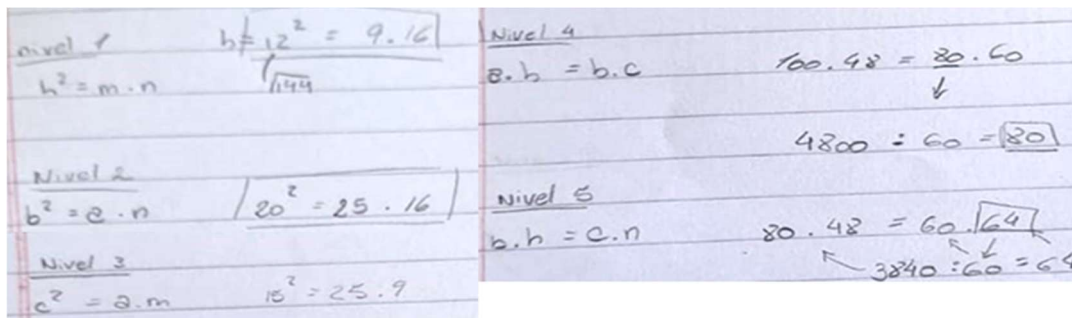 nivel 1
h = 12² = 9.16
√144
h² = m.n
Nivel 2
b² = a.n
20² = 25.16
Nivel 3
c² = a.m
15² = 25.9
Nivel 4
a.h = b.c
100.48 = 80.60
↓
4800 ÷ 60 = 80
Nivel 5
b.h = c.n
80.48 = 60.64
3840 ÷ 60 = 64